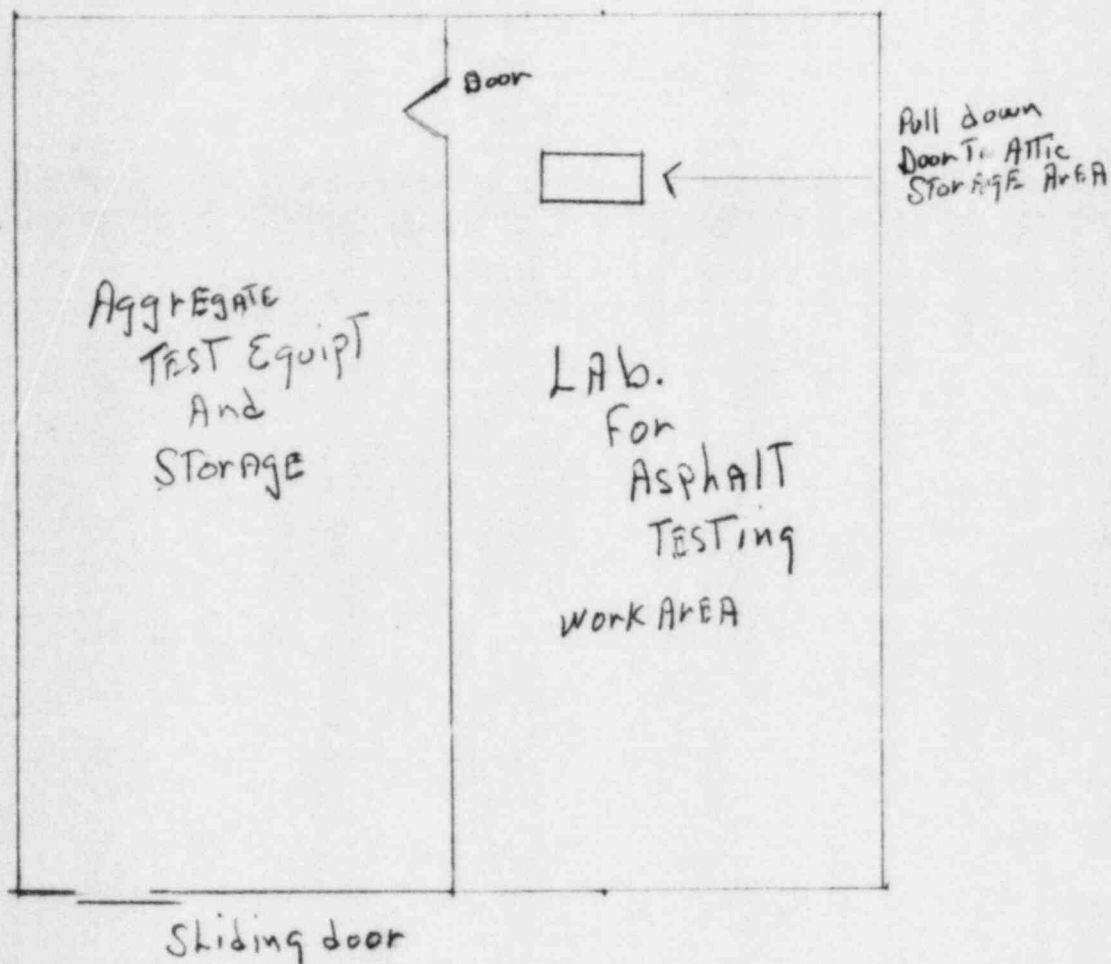 Door
Pull down
Door To Attic
Storage Area
Aggregate
Test Equipt
And
Storage
Lab.
For
Asphalt
Testing
Work Area
Sliding door